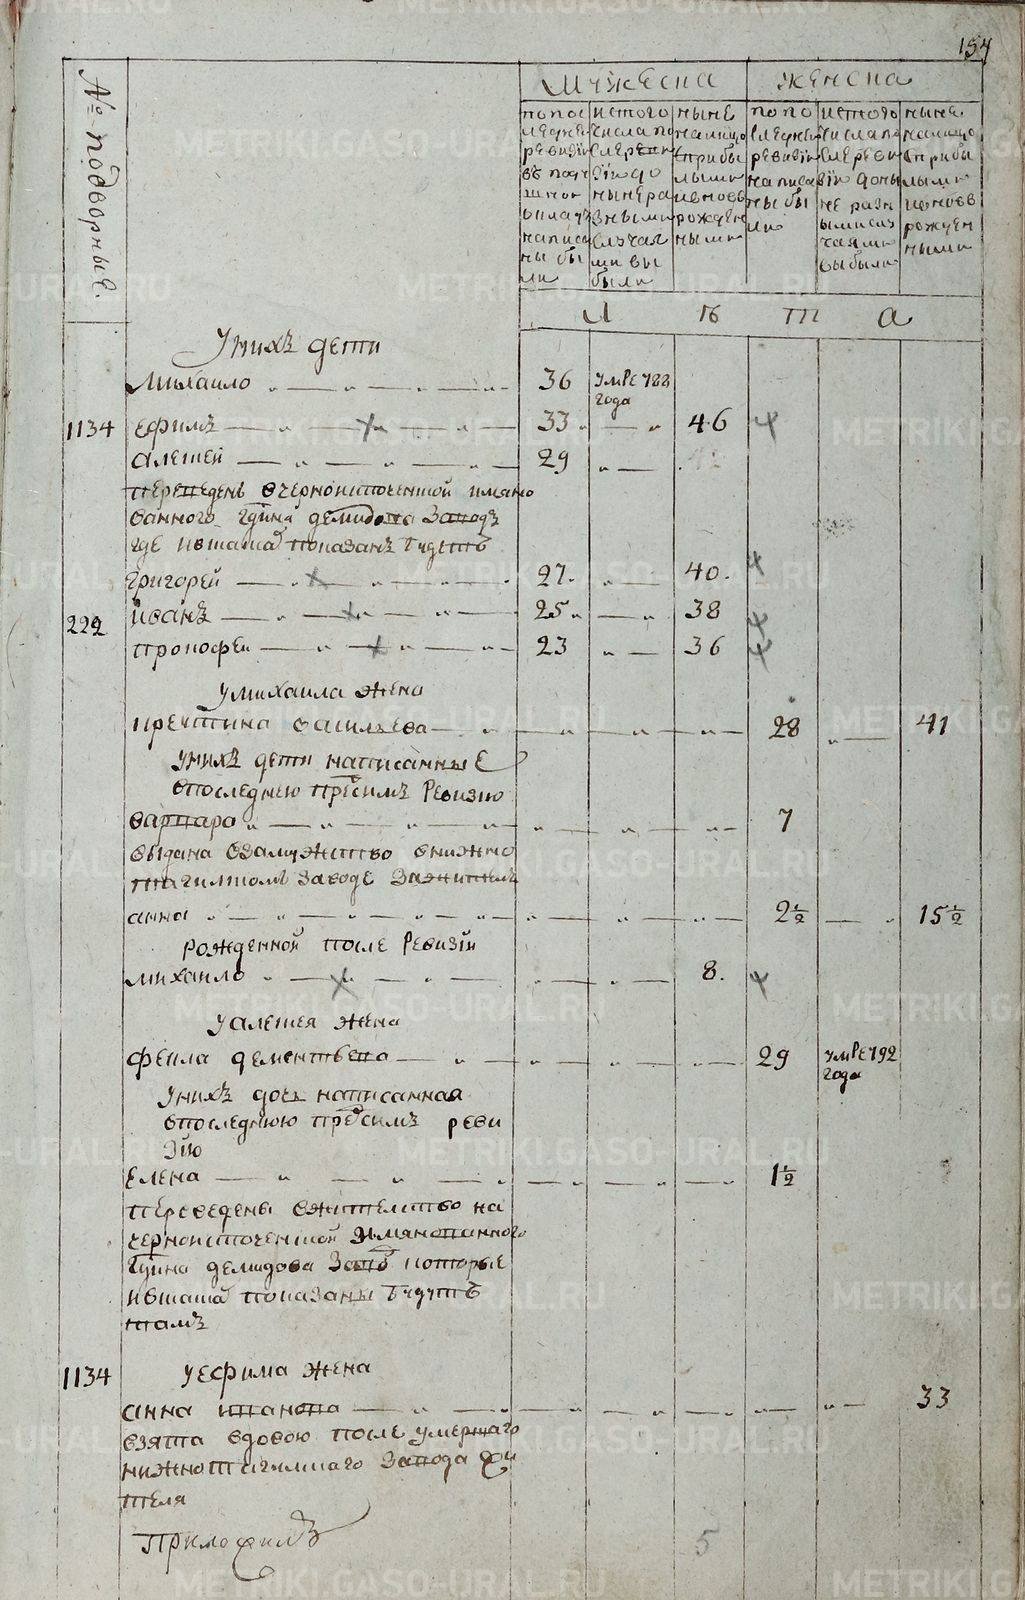 157
№ подворные.
мужеска
женска
по последней ревизіи в подушной оклад написаны были
ис того числа после ревизіи до ныне разными случаями выбыли
ныне налицо с прибылыми и вновь рожденными
по последней ревизіи написаны были
ис того числа после ревизіи до ныне разными случаями выбыли
ныне налицо с прибылыми и вновь рожденными
л ѣ т а
У нихъ дети
михаило 36 умре 788 года
1134 ефимъ 33 46
алексей 29 42
переведенъ в черноисточенской имяно
ванного гдна демидова заводъ
где и в штатъ показанъ будетъ
григорей 27. 40.
222 иванъ 25 38
прокофеи 23 36
у михаила жена
иректина васильева 28 41
у нихъ дети написанные
в последнею пред симъ ревизию
варвара 7
выдана в замужство в нижно
тагилскомъ заводе за жителя
анна 2½ 15½
рожденной после ревизіи
михаило 8.
у алексея жена
фекла дементьева 29 умре 792 года
у нихъ дочь написанная
в последнюю пред симъ реви
зію
елена 1½
переведены в жителство на
черноисточенской имянованного
гдина демидова завод которые
и в штатъ показаны будутъ
тамъ
1134 у ефима жена
анна иванова 33
взята вдовою после умершаго
нижнотагилского завода жи
теля
5